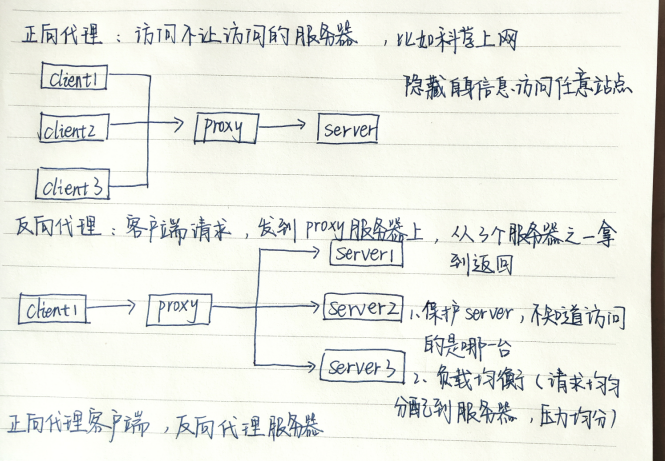 正向代理：访问不让访问的服务器，比如科学上网
隐藏自身信息、访问任意站点
client1
client2
client3
proxy
server
反向代理：客户端请求，发到proxy服务器上，从3个服务器之一拿
到返回
client1
proxy
server1
server2
server3
1、保护server，不知道访问
的是哪一台
2、负载均衡（请求均匀
分配到服务器，压力均分）
正向代理客户端，反向代理服务器